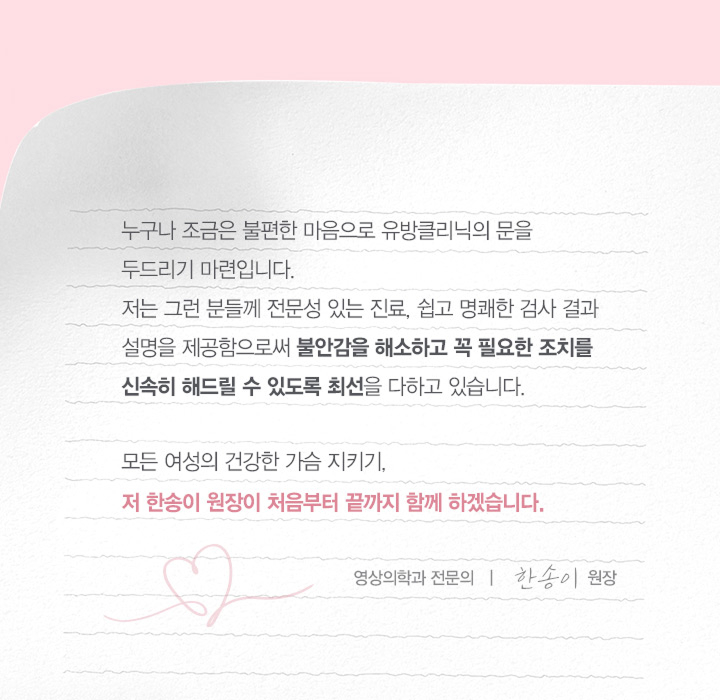 누구나 조금은 불편한 마음으로 유방클리닉의 문을
두드리기 마련입니다.
저는 그런 분들께 전문성 있는 진료, 쉽고 명쾌한 검사 결과
설명을 제공함으로써 불안감을 해소하고 꼭 필요한 조치를
신속히 해드릴 수 있도록 최선을 다하고 있습니다.
모든 여성의 건강한 가슴 지키기,
저 한송이 원장이 처음부터 끝까지 함께 하겠습니다.
영상의학과 전문의 | 한송이 원장